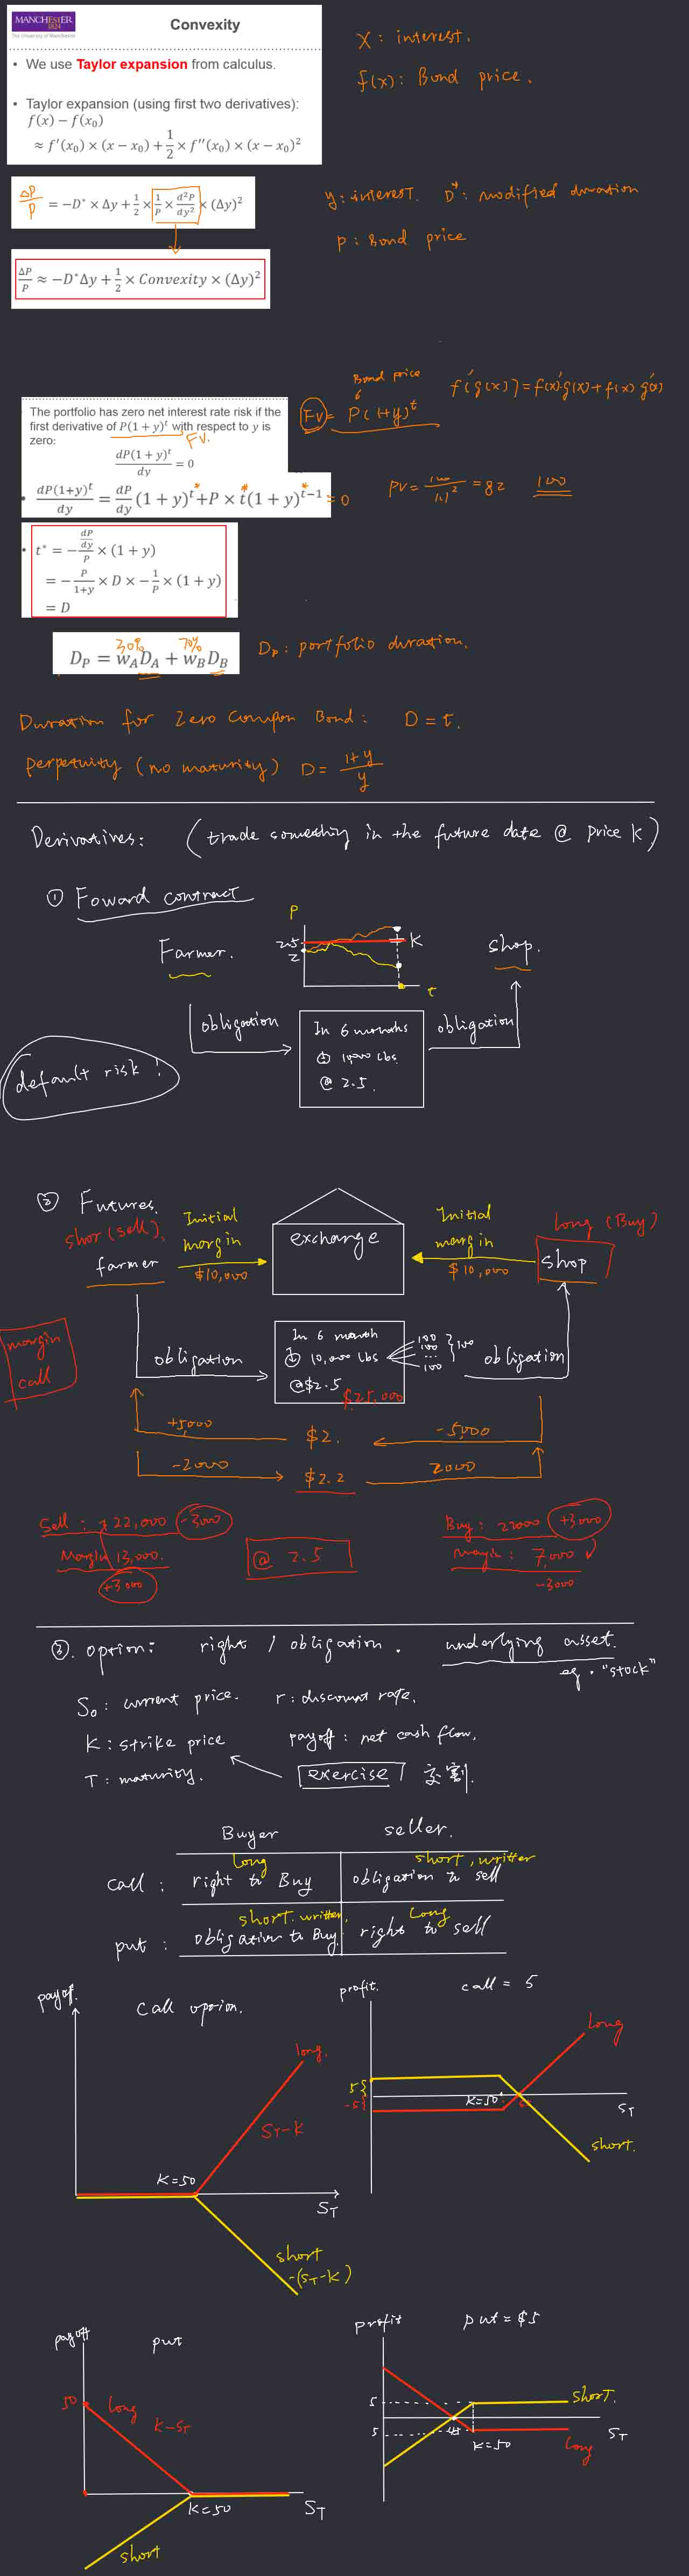 MANCHESTER
1824
The University of Manchester
Convexity
• We use Taylor expansion from calculus.
• Taylor expansion (using first two derivatives):
f(x) − f(x₀)
≈ f′(x₀) × (x − x₀) + 1/2 × f″(x₀) × (x − x₀)²
X : interest.
f(x) : Bond price.
ΔP/P = −D* × Δy + 1/2 × 1/P × d²P/dy² × (Δy)²
ΔP/P ≈ −D*Δy + 1/2 × Convexity × (Δy)²
y : interest. D* : modified duration
P : Bond price
The portfolio has zero net interest rate risk if the
first derivative of P(1 + y)ᵗ with respect to y is
zero:
FV.
dP(1 + y)ᵗ/dy = 0
Bond price
FV = P(1+y)ᵗ
f'(g(x)) = f(x)'g(x) + f(x) g'(x)
• dP(1+y)ᵗ/dy = dP/dy (1 + y)ᵗ* + P × t*(1 + y)ᵗ*⁻¹ = 0
PV = 100/1.1² = 82 100
• t* = − (dP/dy)/P × (1 + y)
= − P/(1+y) × D × − 1/P × (1 + y)
= D
30% 70%
D_P = w_A D_A + w_B D_B
D_P : portfolio duration.
Duration for Zero Coupon Bond : D = t.
Perpetuity (no maturity) D = (1+y)/y
Derivatives: (trade something in the future date @ price K)
① Foward contract
Farmer.
P
2.5
2
K
t
shop.
obligation
In 6 months
① 1000 lbs
@ 2.5.
obligation
default risk !
② Futures.
shor (sell),
farmer
Initial
margin
$10,000
exchange
Initial
margin
$10,000
long (Buy)
shop
margin
call
obligation
In 6 month
① 10,000 lbs
@$2.5
$25,000
100
100
...
100
} 100
obligation
+5,000 $2. −5,000
−2000 $2.2 2000
Sell : +22,000 −3000
Margin 13,000.
+3000
@ 2.5
Buy : 22000 +3000
margin : 7,000 ✓
−3000
③. option: right / obligation. underlying asset.
eg. "stock"
S₀ : current price. r : discount rate.
K : strike price payoff : net cash flow.
T : maturity. exercise 交割.
Buyer seller.
long short, written
call : right to Buy obligation to sell
short. written. Long
put : obligation to Buy. right to sell
payoff. call option.
long.
S_T−K
K=50
S_T
short
−(S_T−K)
profit. call = 5
long
5{
−5{
K=50
S_T
short.
payoff put
50 long
K−S_T
K=50 S_T
short
profit put = $5
5 short.
45 S_T
5 K=50
long